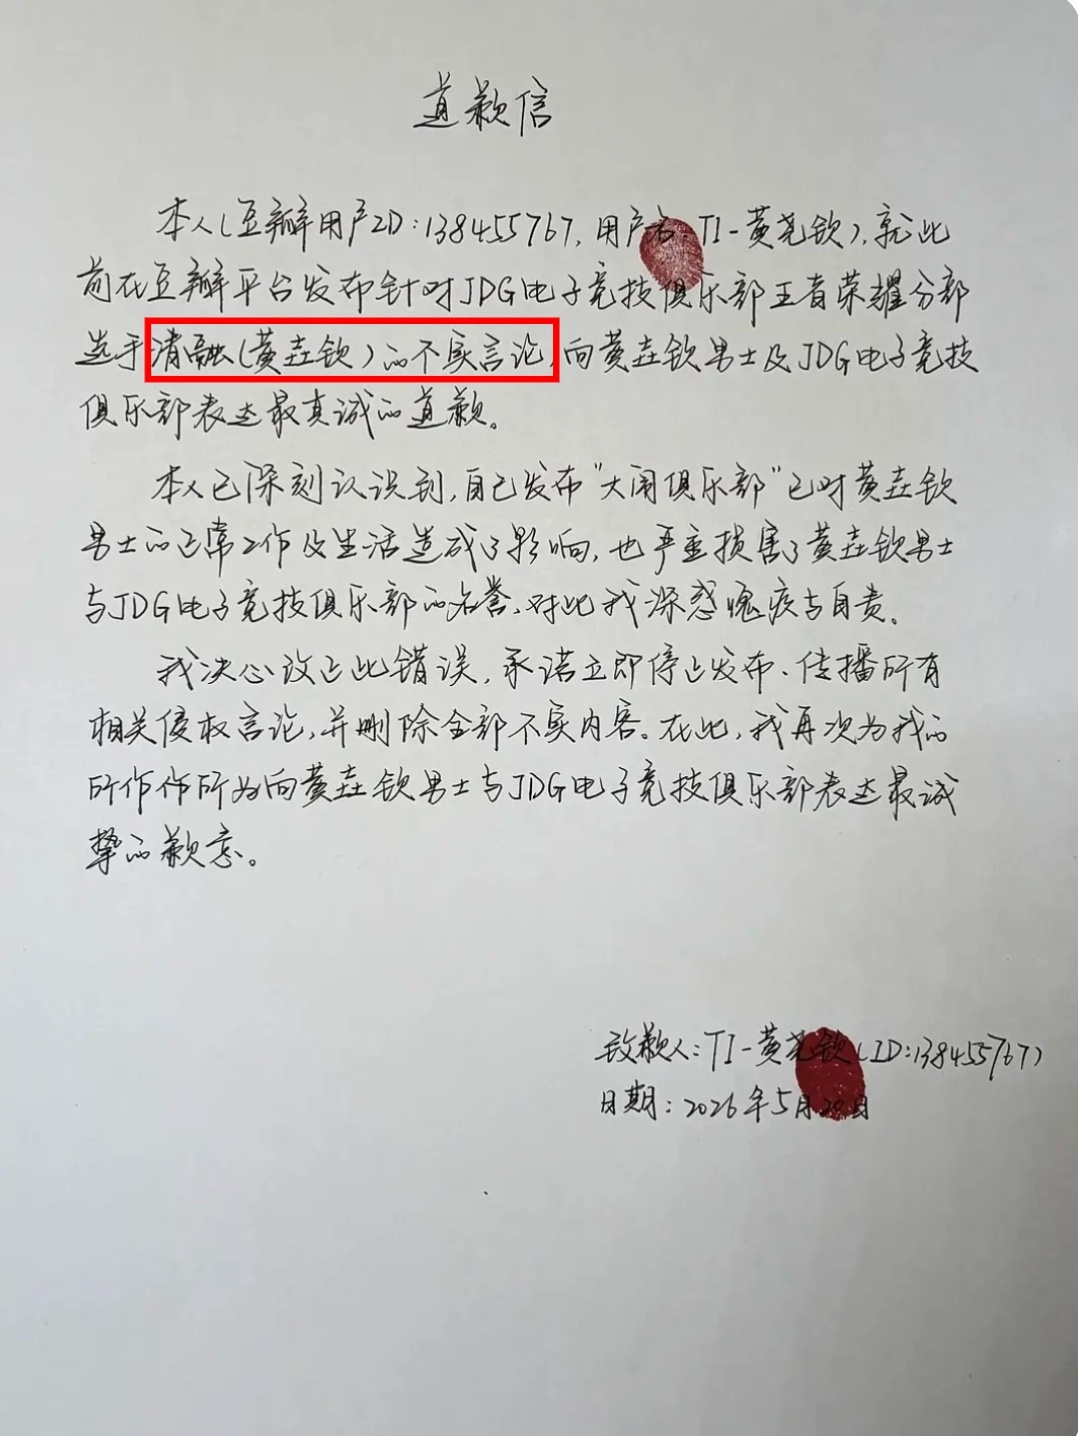 道歉信
本人(豆瓣用户ID:138455767,用户名:TI-黄尧钦),就此
前在豆瓣平台发布针对JDG电子竞技俱乐部王者荣耀分部
选手清融(黄垚钦)的不实言论,向黄垚钦男士及JDG电子竞技
俱乐部表达最真诚的道歉。
本人已深刻认识到,自己发布“大闹俱乐部”已对黄垚钦
男士的正常工作及生活造成了影响,也严重损害了黄垚钦男士
与JDG电子竞技俱乐部的名誉,对此我深感愧疚与自责。
我决心改正此错误,承诺立即停止发布、传播所有
相关侵权言论,并删除全部不实内容。在此,我再次为我的
所作作所为向黄垚钦男士与JDG电子竞技俱乐部表达最诚
挚的歉意。
致歉人:TI-黄尧钦(ID:138455767)
日期:2026年5月20日